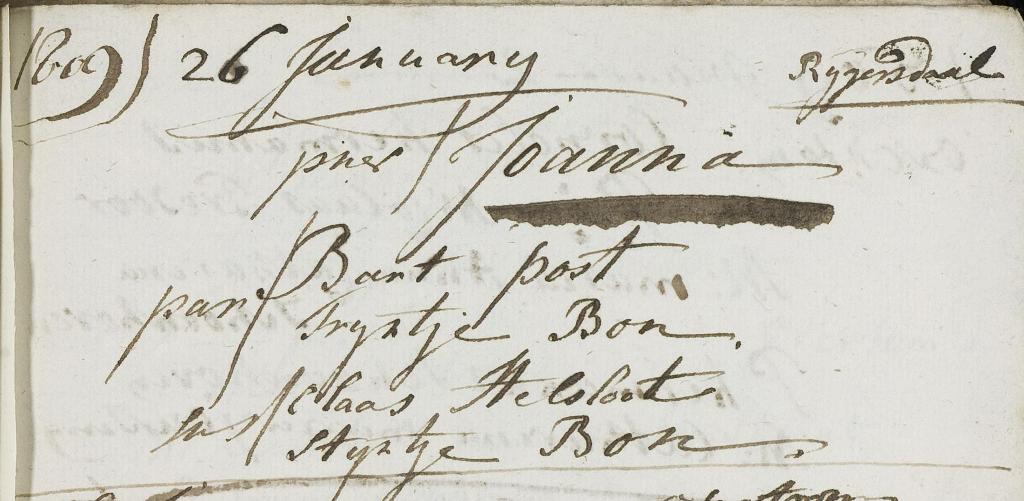 1809) 26 January Rypersdaal
pner Joanna
par Bart post
Tryntje Bon.
sus Claas Helsloot
Styntje Bon